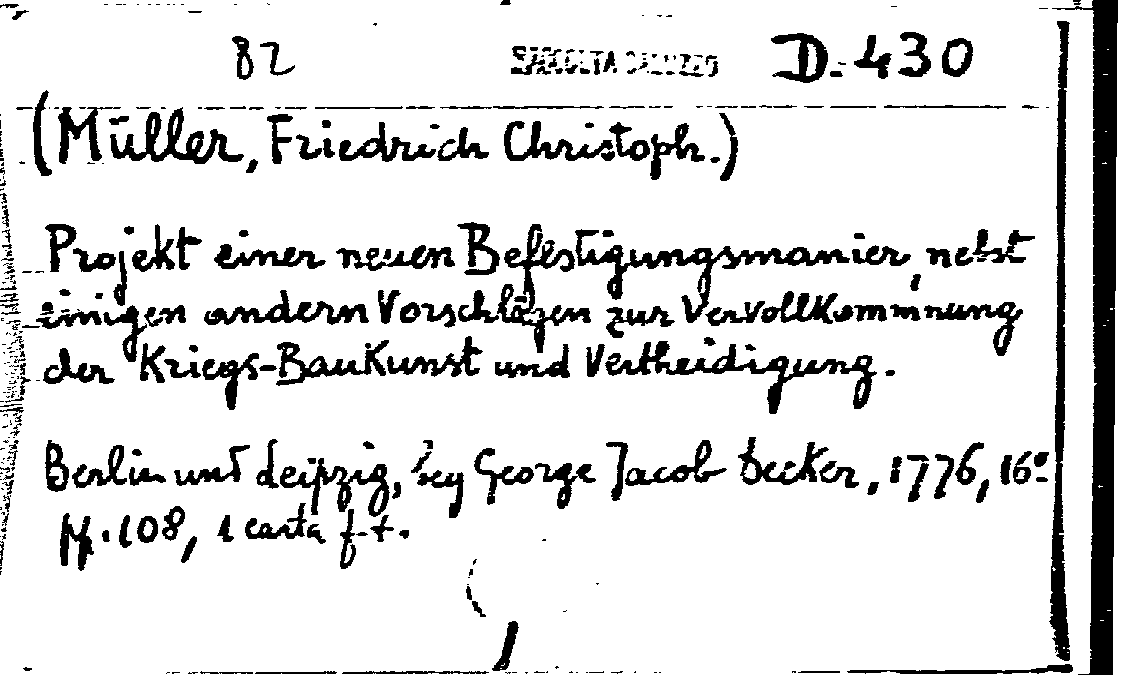 82 RACCOLTA SALUZZO D. 430
(Müller, Friedrich Christoph.)
Projekt einer neuen Befestigungsmanier, nebst
einigen andern Vorschlägen zur Vervollkommnung
der Kriegs-Baukunst und Vertheidigung.
Berlin und Leipzig, bey George Jacob Decker, 1776, 16º
pp. 108, 1 carta f. t.